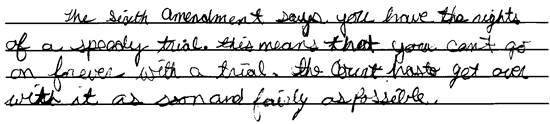 The sixth amendment says you have the rights
of a speedy trial. this means that you can't go
on forever with a trial. the Court has to get over
with it as soon and fairly as possible.